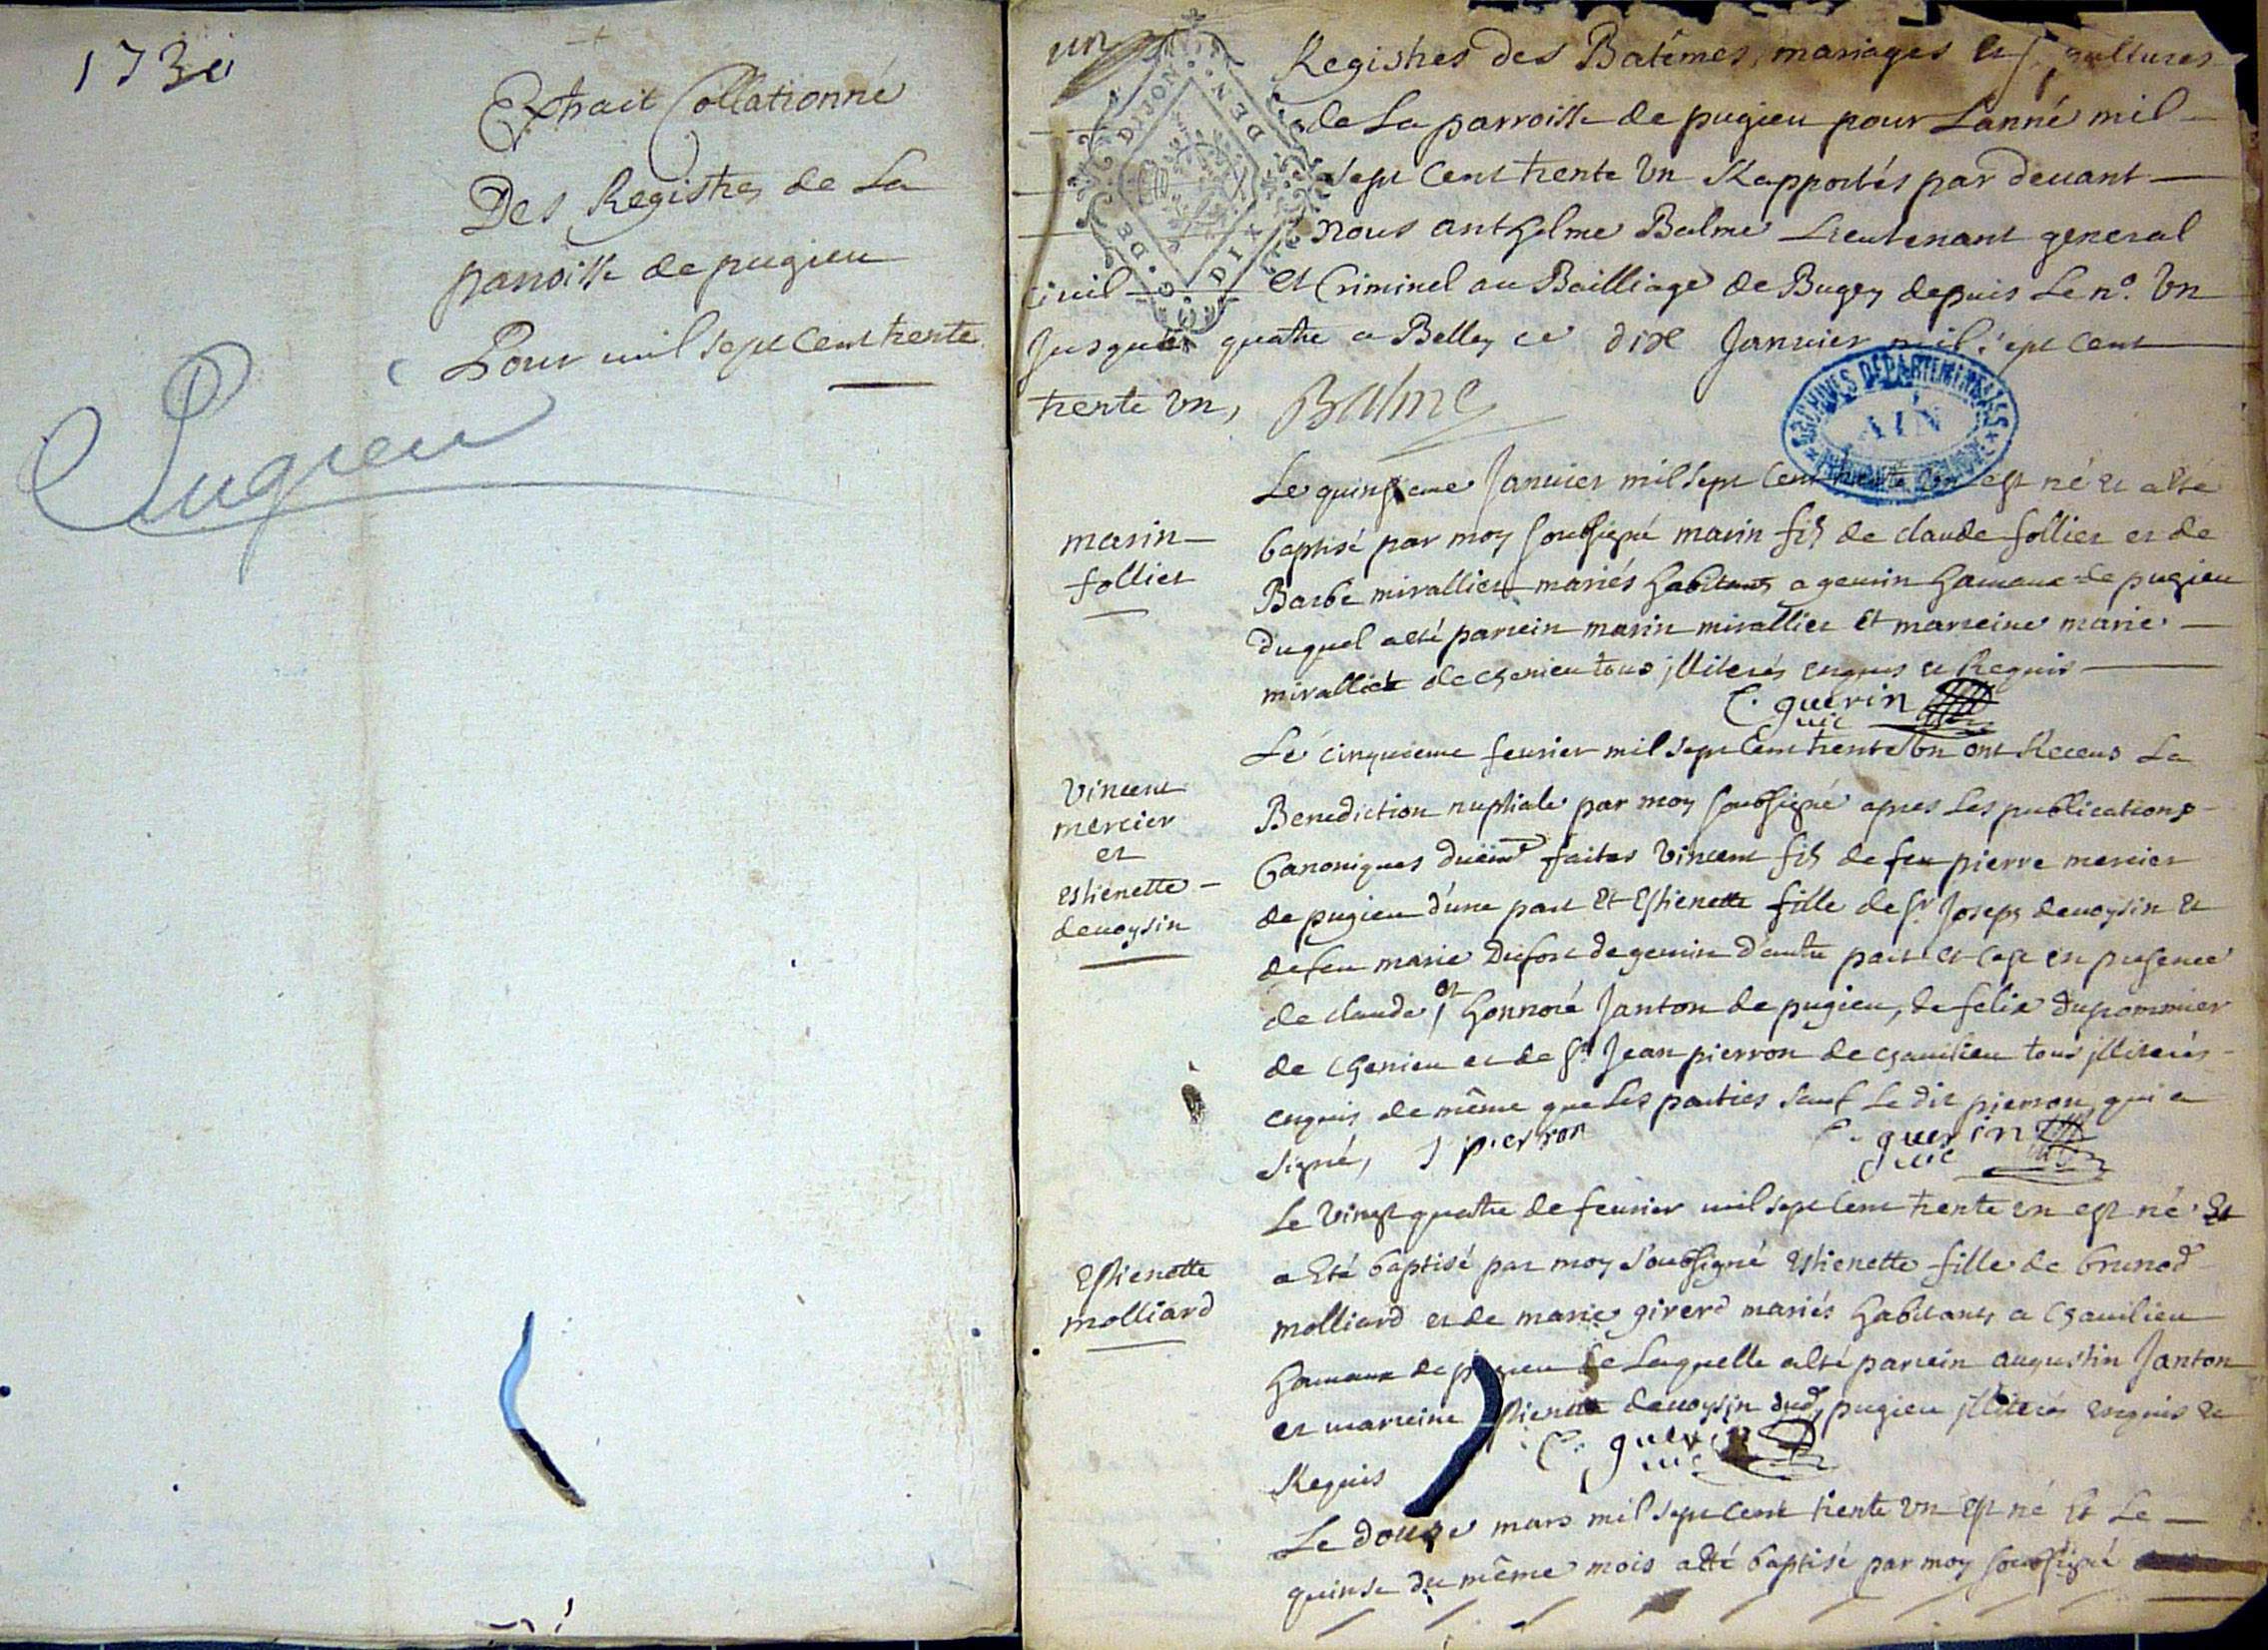 1730
Extrait Collationné
Des Registres de La
parroisse de pugieu
Pour mil sept Cent trente
Pugieu
un
Registres des Batêmes, mariages et sepultures
de La parroisse de pugieu pour Lanné mil
sept Cent trente Un Rapportés par deuant
nous anthelme Balme Lieutenant general
Ciuil et Criminel au Bailliage de Bugey depuis Le n.º Un
Jusqua quatre a Belley ce dixe Januier mil sept Cent
trente Un, Balme
G. DE DIJON
DEN. DIX
ARCHIVES DÉPARTEMENTALES
AIN
Le quinzieme Januier mil sept Cent trente Un est né et a esté
marin
follier
baptisé par moy soubsigné marin fils de claude follier et de
Barbe mirallier mariés habitants a gemin hameau de pugieu
duquel a esté parrein marin mirallier Et marreine marie
mirallier de chenieu tous jlliterés enquis et Requis
C. guerin
curé
Le cinquieme feurier mil sept Cent trente Un ont Receus La
Vincent
mercier
et
estienette
deuoysin
Benediction nuptiale par moy soubsigné apres Les publications
Canoniques duëmt faites Vincent fils de feu pierre mercier
de pugieu d'une part Et Estienette fille de Sr Joseph deuoysin Et
de feu marie Dufort de gemin d'autre part et Cest en presence
de claude et honnoré Janton de pugieu, de felix dupommier
de Chenieu et de Sr Jean pierron de chauilieu tous jlliterés
enquis de même que Les parties sauf Le dit pierron qui a
signé, J pierron
C. guerin
curé
Le Vingt quatre de feurier mil sept Cent trente un est né Et
Estienette
molliard
a Eté baptisé par moy soubsigné Estienette fille de brunod
molliard et de marie girerd mariés habitants a chauilieu
hameau de pugieu de Laquelle a esté parrein augustin Janton
et marreine Estienette deuoysin dud, pugieu jlliterés enquis et
Requis
C. guerin
curé
Le douze mars mil sept Cent trente Un Est né Et Le
quinse du même mois a Eté baptisé par moy soubsigné